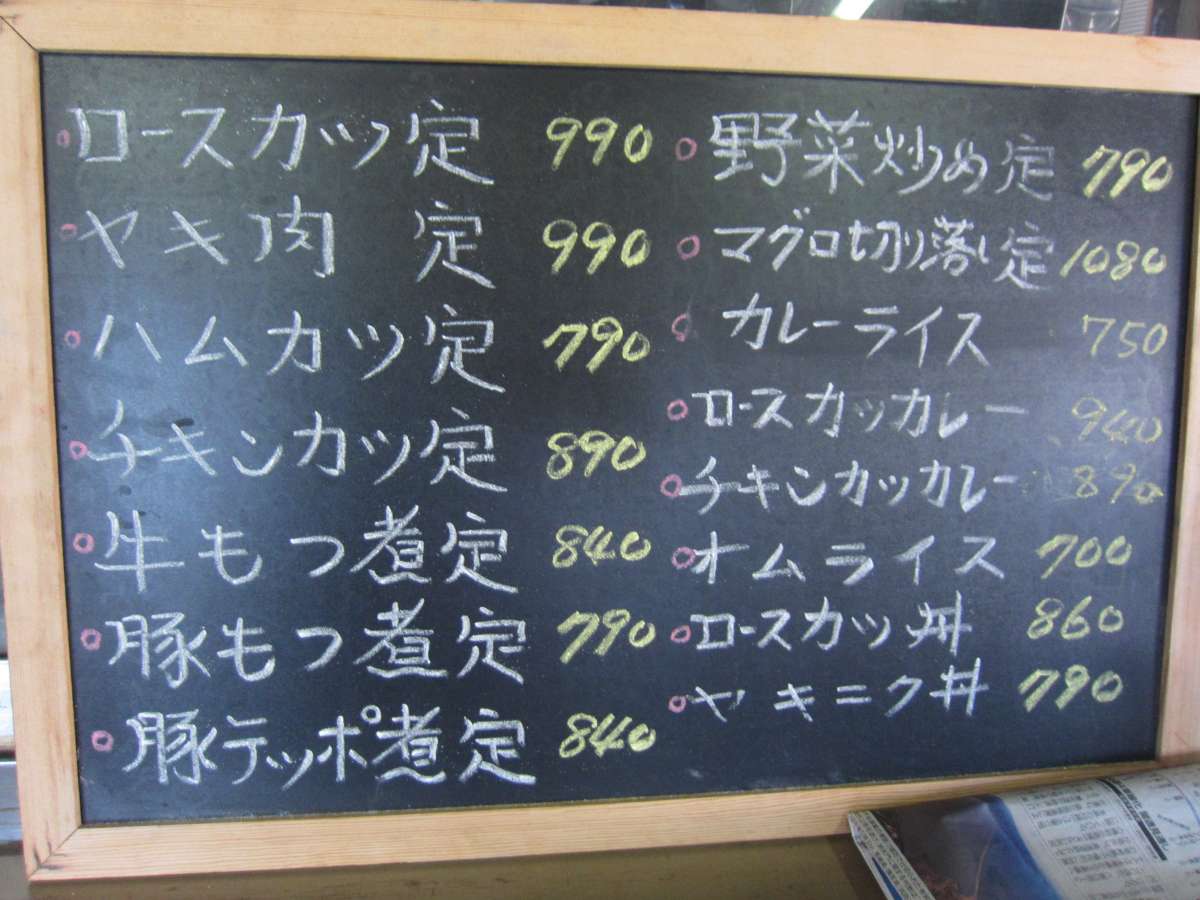 ロースカツ定 990
ヤキ肉 定 990
ハムカツ定 790
チキンカツ定 890
牛もつ煮定 840
豚もつ煮定 790
豚テッポ煮定 840
野菜炒め定 790
マグロ切り落し定 1080
カレーライス 750
ロースカツカレー 940
チキンカツカレー 890
オムライス 700
ロースカツ丼 860
ヤキニク丼 790